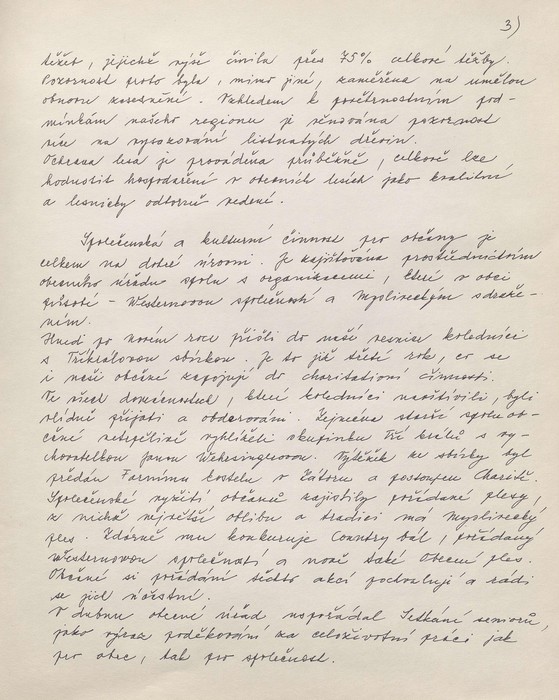 3)
těžeb, jejichž výše činila přes 75% celkové těžby.
Pozornost proto byla, mimo jiné, zaměřena na umělou
obnovu zalesnění. Vzhledem k povětrnostním pod-
mínkám našeho regionu je věnována pozornost
více na vysazování listnatých dřevin.
Ochrana lesa je prováděna průběžně, celkově lze
hodnotit hospodaření v obecních lesích jako kvalitní
a lesnicky odborně vedené.
Společenská a kulturní činnost pro občany je
celkem na dobré úrovni. Je zajišťována prostřednictvím
obecního úřadu spolu s organizacemi, které v obci
působí - Westernovou společností a Mysliveckým sdruže-
ním.
Hned po novém roce přišli do naší vesnice koledníci
s Tříkrálovou sbírkou. Je to již třetí rok, co se
i naši občané zapojují do charitativní činnosti.
Ve všech domácnostech, které koledníci navštívili, byli
vlídně přijati a obdarováni. Zejména starší spoluob-
čané netrpělivě vyhlíželi skupinku Tří králů s vy-
chovatelkou Janou
Výtěžek ze sbírky byl
předán Farnímu kostelu v Zátoru a postoupen Charitě.
Společenské vyžití občanů zajistily pořádané plesy,
z nichž největší oblibu a tradici má Myslivecký
ples. Zdárně mu konkuruje Country bál, pořádaný
Westernovou společností a nově také Obecní ples.
Občané si pořádání těchto akcí pochvalují a rádi
se jich účastní.
V dubnu obecní úřad uspořádal Setkání seniorů,
jako výraz poděkování za celoživotní práci jak
pro obec, tak pro společnost.